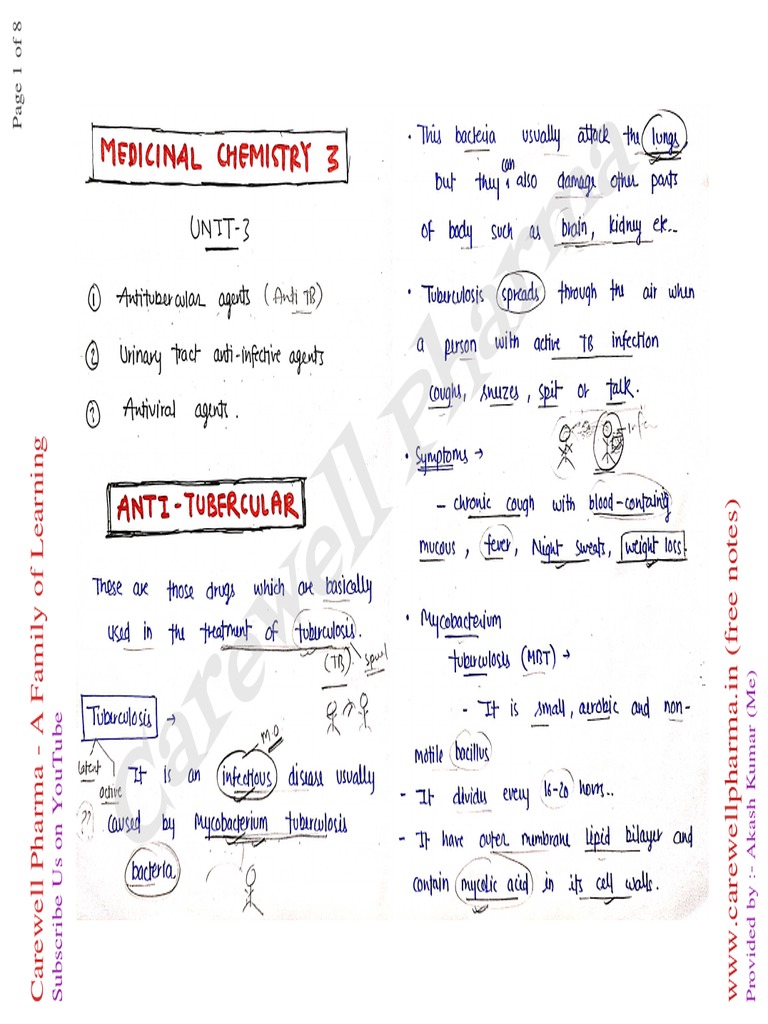 Page 1 of 8
MEDICINAL CHEMISTRY 3
UNIT-3
① Antitubercular agents (Anti TB)
② Urinary tract anti-infective agents
③ Antiviral agents.
ANTI-TUBERCULAR
These are those drugs which are basically
used in the treatment of tuberculosis.
(TB)
Tuberculosis →
M.O
latent
active
It is an infectious disease usually
??
caused by Mycobacterium tuberculosis
bacteria.
• This bacteria usually attack the lungs
but they can also damage other parts
of body such as brain, kidney etc..
• Tuberculosis spreads through the air when
a person with active TB infection
coughs, snuzes, spit or talk.
• Symptoms →
- chronic cough with blood-containing
mucous, fever, Night sweats, weight loss.
• Mycobacterium
tuberculosis (MBT) →
- It is small, aerobic and non-
motile bacillus
- It divides every 16-20 hours..
- It have outer membrane lipid bilayer and
contain mycolic acid in its cell walls.
Carewell Pharma
Carewell Pharma - A Family of Learning
Subscribe Us on YouTube
www.carewellpharma.in (free notes)
Provided by :- Akash Kumar (Me)